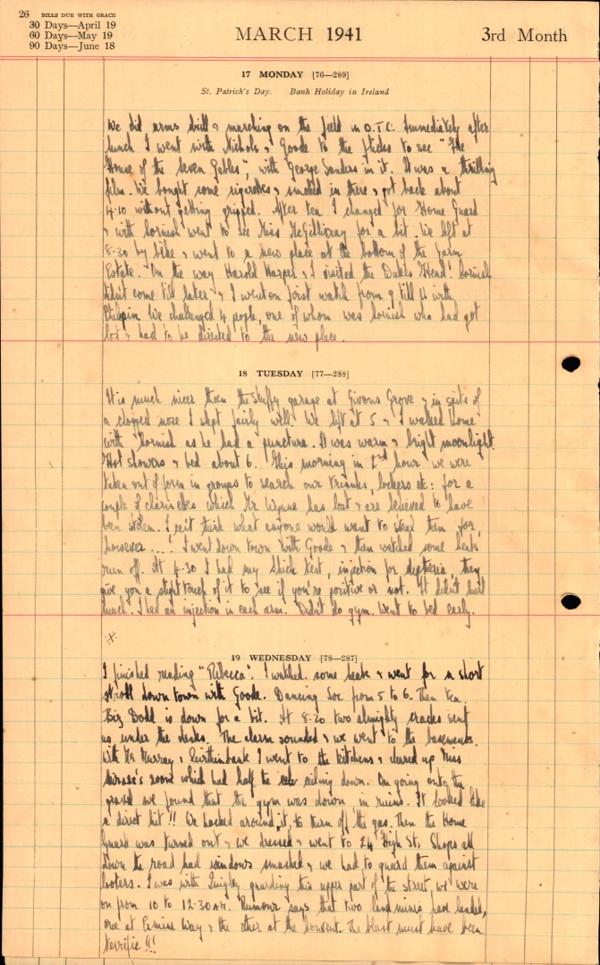 26 BILLS DUE WITH GRACE
30 Days—April 19
60 Days—May 19
90 Days—June 18
MARCH 1941
3rd Month
17 MONDAY [76—289]
St. Patrick's Day. Bank Holiday in Ireland
We did arms drill & marching on the field in O.T.C. Immediately after
lunch I went with Nichols & Goode to the flicks to see "The
House of the Seven Gables", with George Sanders in it. It was a thrilling
film. We bought some cigarettes & smoked in there & got back about
4.10 without getting gripped. After tea I changed for Home Guard
& with Cornish went to see Miss McGillivray for a bit. We left at
8.30 by bike & went to a new place at the bottom of the farm
Estate. On the way Harold Harper & I visited the Dukes Head. Cornish
didn't come till later & I went on first watch from 9 till 11 with
We challenged 4 people, one of whom was Cornish who had got
lost & had to be directed to the new place.
18 TUESDAY [77—288]
It is much nicer than the stuffy garage at Givons Grove & in spite of
a clogged nose I slept fairly well. We left at 5 & I walked home
with Cornish as he had a puncture. It was warm & bright moonlight.
Hot showers & bed about 6. This morning in 2nd hour we were
taken out of form in groups to search our trunks, lockers etc: for a
couple of clarinettes which Mr Wynne has lost & are believed to have
been stolen. I can't think what anyone would want to steal them for,
however....! I went down town with Goode & then watched some heats
run off. At 4.30 I had my Shick test, injection for diptheria, they
give you a slight touch of it to see if you're positive or not. It didn't hurt
much. I had an injection in each arm. Didn't do gym. Went to bed early.
X
19 WEDNESDAY [78—287]
I finished reading "Rebecca". I watched some heats & went for a short
stroll down town with Goode. Dancing Soc from 5 to 6. Then tea.
Big Dodd is down for a bit. At 8.20 two almighty cracks sent
us under the desks. The alarm sounded & we went to the basements.
With Mr Murray & I went to the kitchens & cleared up Miss
room which had half the ceiling down. On going onto the
gravel we found that the gym was down in ruins. It looked like
a direct hit!! We hacked around it, to turn off the gas. Then the Home
Guard was turned out & we dressed & went to 24 High St. Shops all
down the road had windows smashed & we had to guard them against
looters. I was with Quigley guarding the upper part of the street, we were
on from 10 to 12.30 a.m. Rumour says that two land mines have landed,
one at Way & the other at the Convent. The blast must have been
terrific!!!